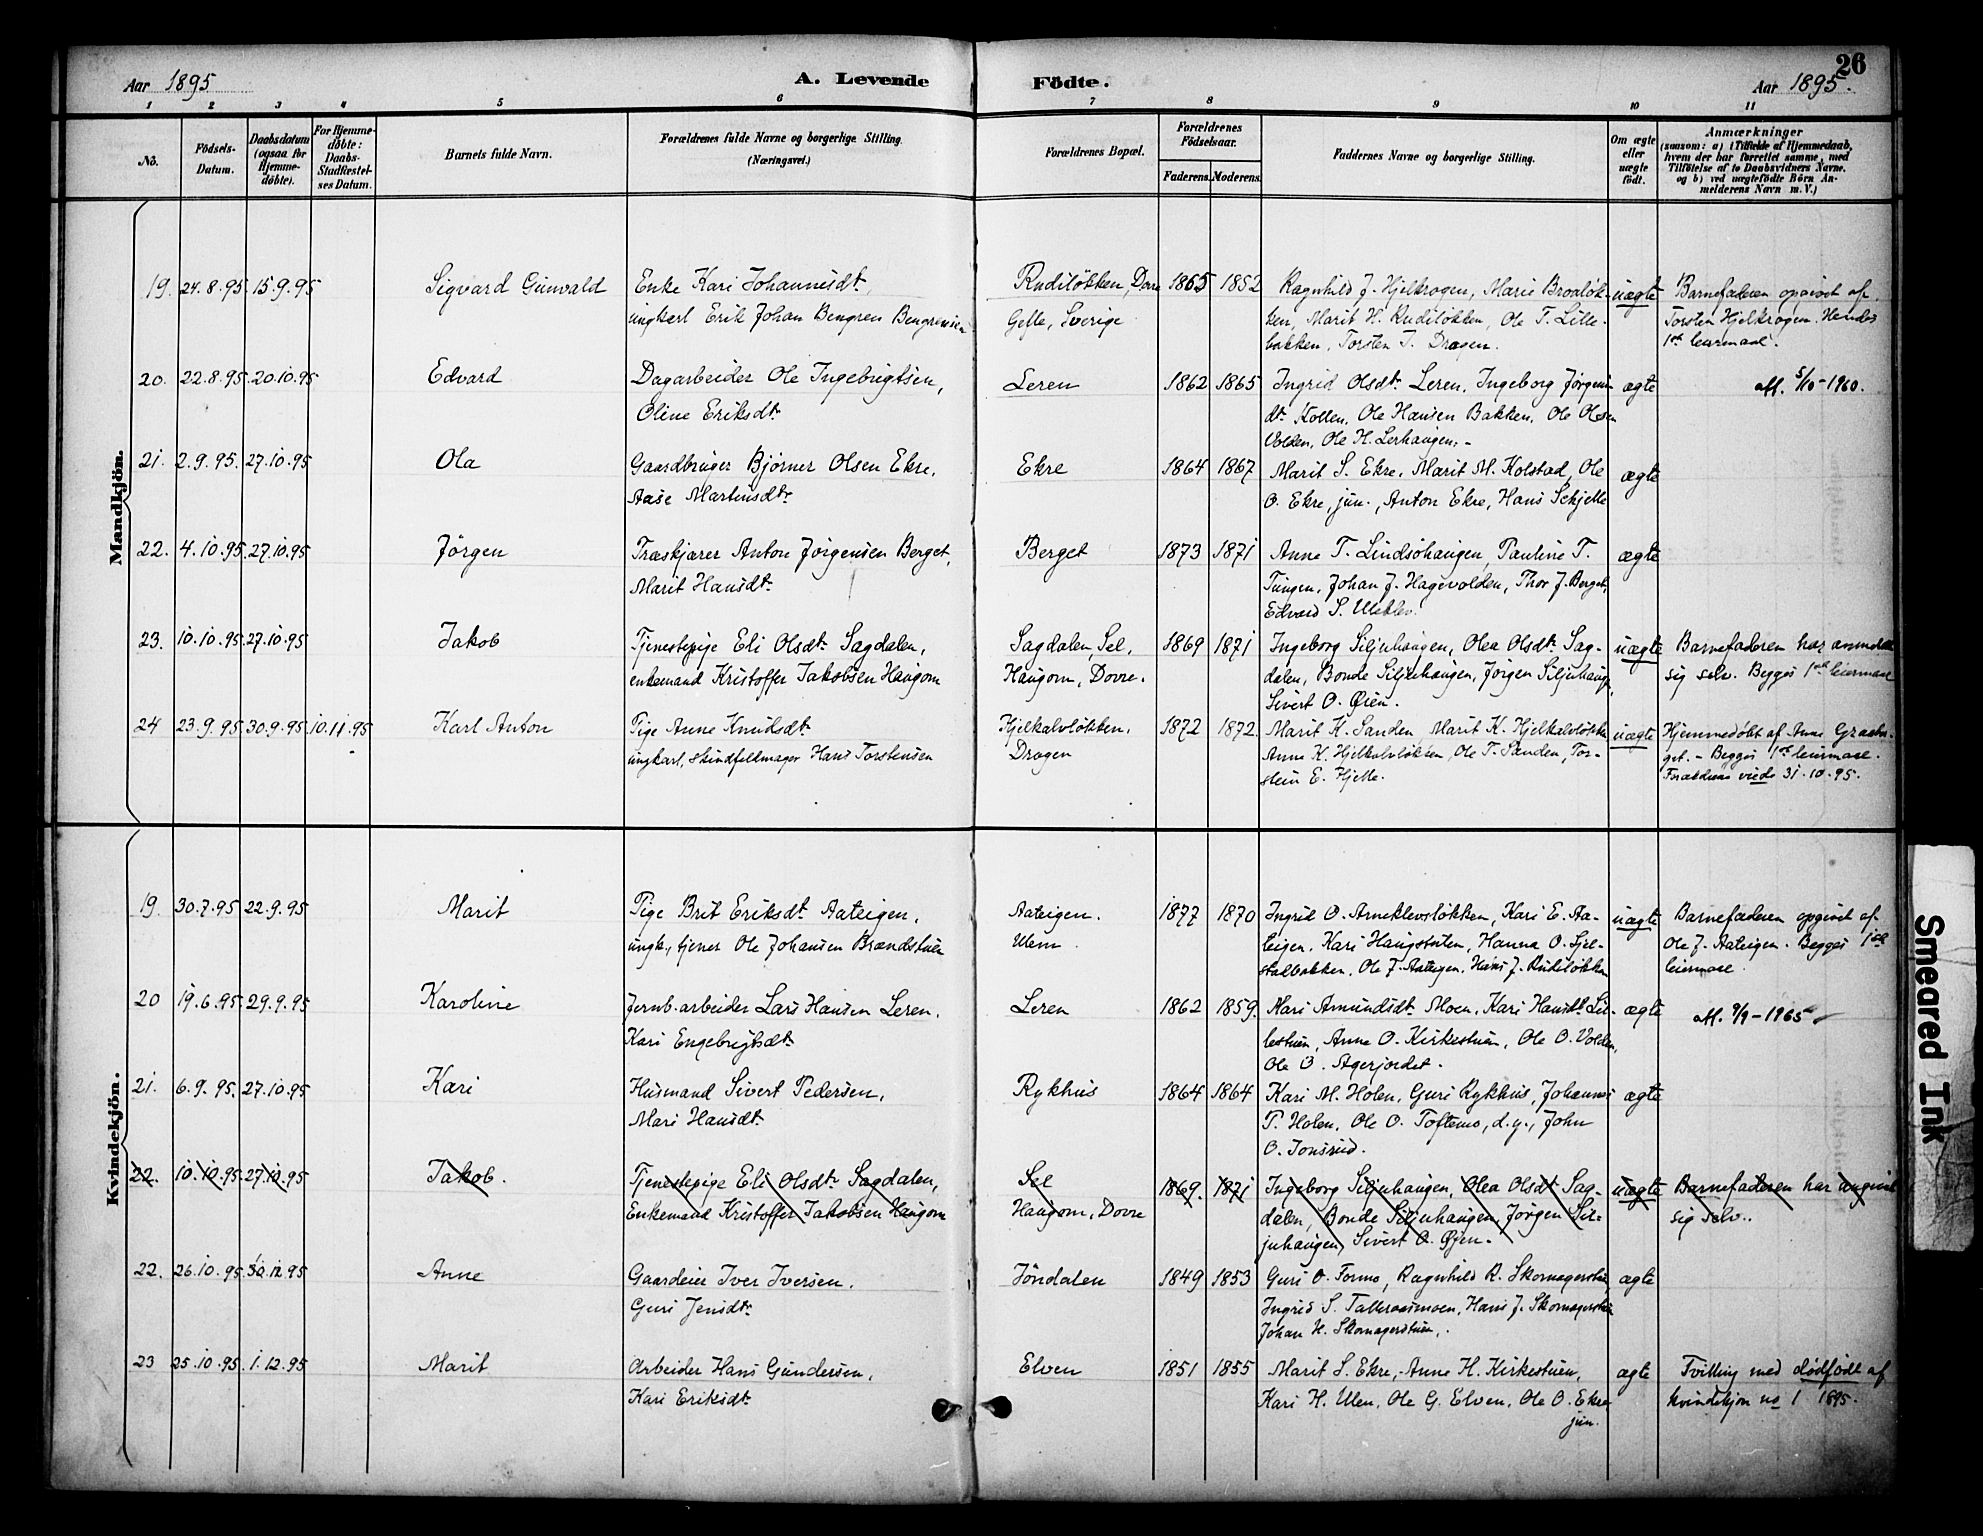 26
Aar 1895
A. Levende
Födte.
Aar 1895.
1 2 3 4 5 6 7 8 9 10 11
No.
Födsels-
Datum.
Daabsdatum
(ogsaa for
Hjemme-
döbte).
For Hjemme-
döbte:
Daabs-
Stadfæstel-
ses Datum.
Barnets fulde Navn.
Forældrenes fulde Navne og borgerlige Stilling
(Næringsvei.)
Forældrenes Bopæl.
Forældrenes
Födselsaar.
Faderens. Moderens.
Faddernes Navne og borgerlige Stilling.
Om ægte
eller
uægte
födt.
Anmærkninger
(saasom: a) i Tilfælde af Hjemmedaab,
hvem der har forrettet samme, med
Tilföielse af to Daabsvidners Navne.
og b) ved uægtefödte Börn An-
melderens Navn m. V.)
Mandkjön.
19. 24.8.95. 15.9.95 Sigvard Gunvald
Enke Kari Johannesdt.,
ungkarl Erik Johan Bengren Bengrensen
Rudiløkken, Dovre
Gefle, Sverige
1865 1852
Ragnhild J. Hjelkrogen, Marie Broaløk-
ken, Marit H. Rudiløkken, Ole T. Lille-
bakken, Torsten T. Dragen.
uægte
Barnefaderen opgivet af
Torsten Hjelkrogen. Hendes
1st leiermaal.
20. 22.8.95. 20.10.95 Edvard
Dagarbeider Ole Ingebrigtsen,
Oline Eriksdt.
Leren
1862 1865
Ingrid Olsdt. Leren, Ingeborg Jørgens-
dt. Kollen, Ole Hansen Bakken, Ole Olsen
Volden, Ole H. Lerhaugen. -
ægte
Att. 5/10-1960.
21. 2.9.95. 27.10.95 Ola
Gaardbruger Bjørner Olsen Ekre,
Aase Martinsdt.
Ekre
1864 1867
Marit S. Ekre, Marit M. Kolstad, Ole
O. Ekre, jun., Anton Ekre, Hans Schjelle
ægte
22. 4.10.95. 27.10.95 Jørgen
Træskjærer Anton Jørgensen Berget,
Marit Hansdt.
Berget
1873 1871
Anne T. Lindsøhaugen, Pauline T.
Tungen, Johan J. Hagevolden, Thor J. Berget,
Edvard S. Uleklev.
ægte
23. 10.10.95. 27.10.95 Jakob
Tjenestepige Eli Olsdt. Sagdalen,
enkemand Kristoffer Jakobsen Haugom
Sagdalen, Sel,
Haugom, Dovre.
1869 1871
Ingeborg Siljuhaugen, Olea Olsdt. Sag-
dalen, Bonde Siljuhaugen, Jørgen Siljuhaug.,
Sivert O. Øien.
uægte
Barnefaderen har anmeldt
sig selv. Begges 1ste leiermaal
24 23.9.95. 30.9.95. 10.11.95 Karl Anton
Pige Anne Knudsdt.
ungkarl, skindfeldmager Hans Torstensen
Hjelkalvløkken,
Dragen
1872 1872
Marit K. Sanden, Marit K. Hjelkalvløkken
Anne K. Hjelkalvløkken, Ole T. Sanden, Tor-
stein E. Hjelle.
uægte
Hjemmedøbt af Anne Graaber-
get. - Begges 1ste leiermaal.
Forældrene viede 31.10.95.
Kvindekjön.
19. 30.7.95 22.9.95 Marit
Pige Brit Eriksdt. Aateigen,
ungk., tjener Ole Johansen Brændstuen
Aateigen.
Ulenn
1877 1870
Ingrid O. Arneklevsløkken, Kari E. Aa-
teigen, Kari Haugstuten, Hanna O. Sjel-
stadbakken, Ole J. Aateigen, Hans J. Rudiløkken
uægte
Barnefaderen opgivet af
Ole J. Aateigen. Begges 1ste
leiermaal.
20 19.6.95. 29.9.95 Karoline
Jernb.arbeider Lars Hansen Leren,
Kari Engebrigtsdt.
Leren
1862 1859.
Mari Amundsdt. Moen, Kari Hansdt. Lil-
lestuen, Anne O. Kirkestuen, Ole O. Volden,
Ole O. Agerjordet.
ægte
Att. 9/9-1965
21. 6.9.95. 27.10.95 Kari
Husmand Sivert Pedersen,
Mari Hansdt.
Rykhus
1864 1864
Kari M. Holen, Guri Rykhus, Johannes
P. Holen, Ole O. Toftemo, d.y., John
O. Jonsrud.
ægte
22. 10.10.95. 27.10.95 Jakob.
Tjenestepige Eli Olsdt. Sagdalen,
Enkemand Kristoffer Jakobsen Haugom
Sel
Haugom, Dovre
1869. 1871
Ingeborg Siljuhaugen, Olea Olsdt Sag-
dalen, Bonde Siljuhaugen, Jørgen Sil-
juhaugen, Sivert O. Øjen.
uægte
Barnefaderen har angivet
sig selv.
22. 26.10.95. 30.12.95 Anne
Gaardeier Iver Iversen,
Guri Jensdt.
Jöndalen
1849 1853
Guri O. Formo, Ragnhild R. Skomagerstuen
Ingrid S. Talleraasmoen, Hans J. Skomagerstuen
Johan H. Skomagerstuen.
ægte
23 25.10.95. 1.12.95 Marit
Arbeider Hans Gundersen,
Kari Eriksdt.
Elven
1851 1855
Marit S. Ekre, Anne H. Kirkestuen,
Kari H. Ulen, Ole G. Elven, Ole O. Ekre
jun.
ægte
Tvilling med dødfødt af
kvindekjøn no 1 1895.
Smeared Ink